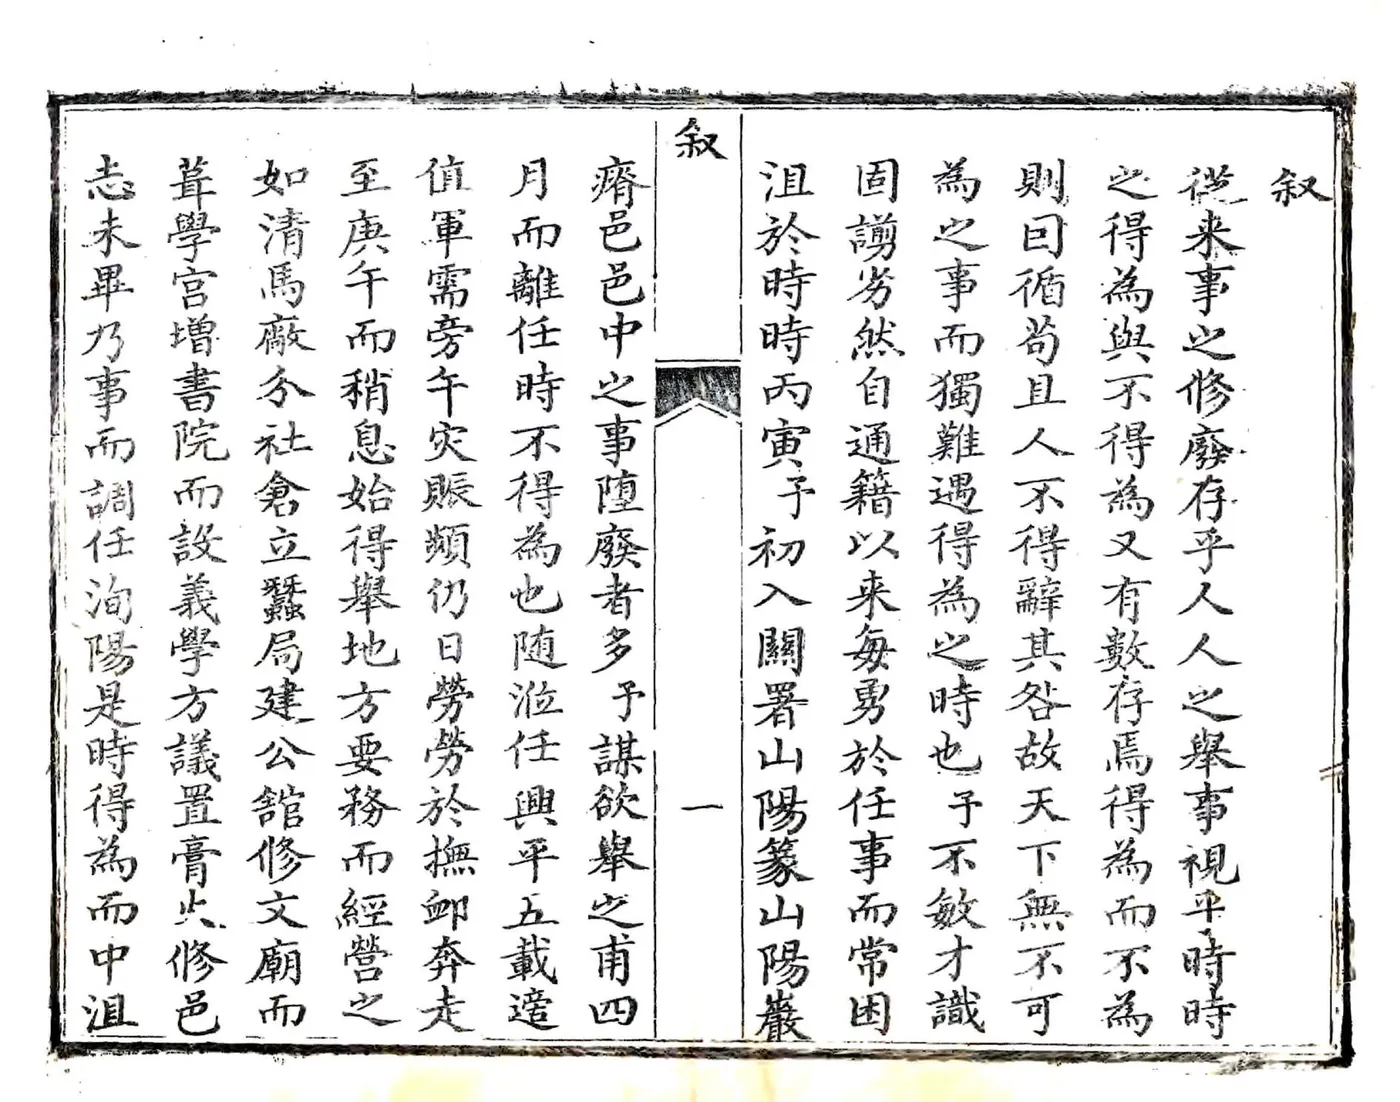 叙
從来事之修廢存乎人人之舉事視乎時時
之得為與不得為又有數存焉得為而不為
則囙循苟且人不得辭其咎故天下無不可
為之事而獨難遇得為之時也予不敏才識
固謭劣然自通籍以来每勇於任事而常困
沮於時時丙寅予初入關署山陽篆山陽巖
叙
一
瘠邑邑中之事堕廢者多予謀欲舉之甫四
月而離任時不得為也随涖任興平五載適
值軍需旁午灾賑頻仍日勞勞於撫卹奔走
至庚午而稍息始得舉地方要務而經營之
如清馬廠分社倉立蠶局建公舘修文廟而
葺學宮增書院而設義學方議置膏火修邑
志未畢乃事而調任洵陽是時得為而中沮